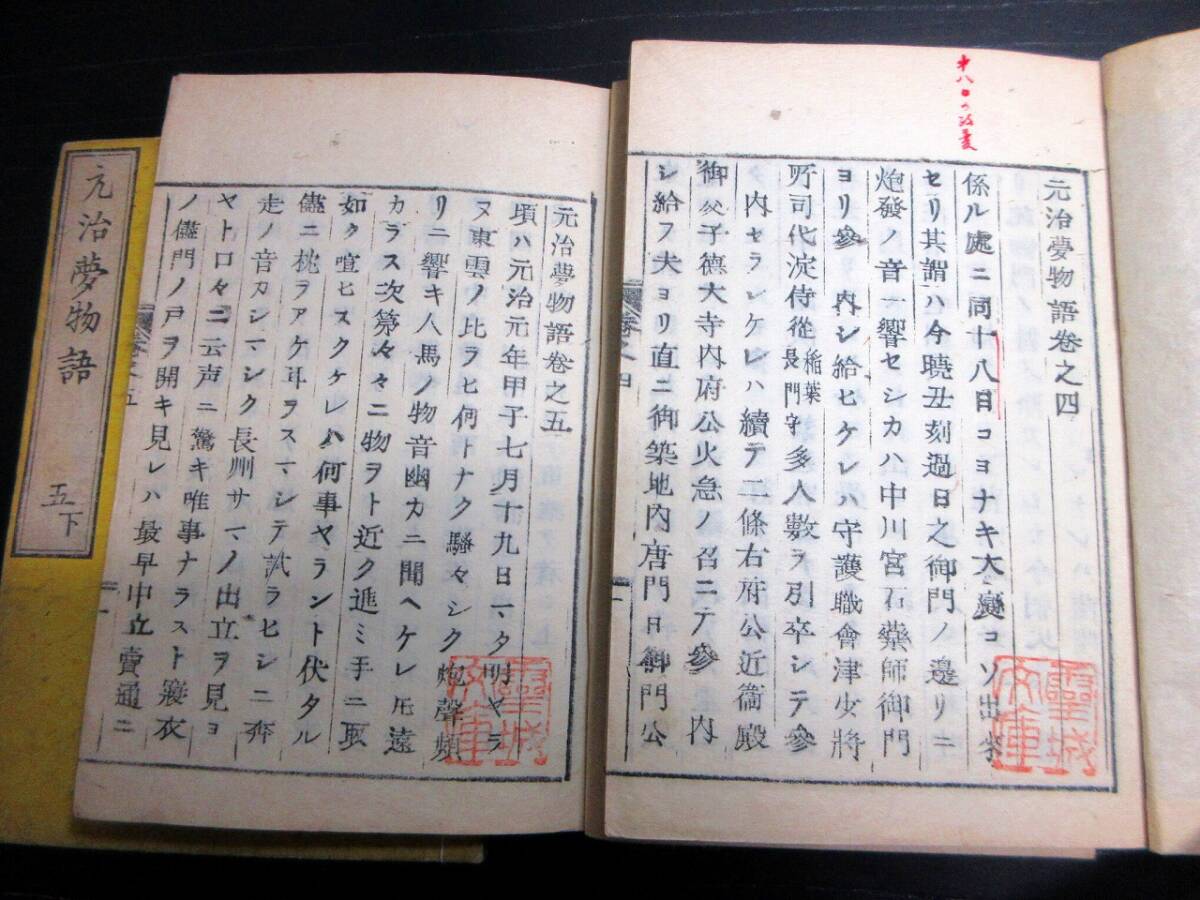 十八日の政変
元治夢物語卷之四
係ル處ニ同十八日コヨナキ大變コソ出來
セリ其謂ハ今曉丑刻過日之御門ノ邊リニ
炮發ノ音一響セシカハ中川宮石藥師御門
ヨリ參内シ給ヒケレハ守護職會津少將
所司代淀侍從稲葉長門守多人數ヲ引卒シテ參
内セラレケレハ續テ二條右府公近衞殿
御父子德大寺内府公火急ノ召ニテ參内
シ給フ夫ヨリ直ニ御築地内唐門日御門公
卷之四
靈城
文庫
元治夢物語卷之五
頃ハ元治元年甲子七月十九日マタ明ヤラ
ヌ東雲ノ比ラヒ何トナク騒々シク炮聲頻
リニ響キ人馬ノ物音幽カニ聞ヘケレ𪜈遠
カラス次第々々ニ物ヲト近ク進ミ手ニ取
如ク喧ヒスクケレハ何事ヤラント伏タル
儘ニ枕ヲアケ耳ヲスマシテ試ラヒシニ奔
走ノ音カシマシク長州サマノ出立ヲ見ヨ
ヤト口々ニ云声ニ驚キ唯事ナラスト寢衣
ノ儘門ノ戸ヲ開キ見レハ最早中立賣通ニ
卷之五
一
靈城
文庫
元治夢物語
五下